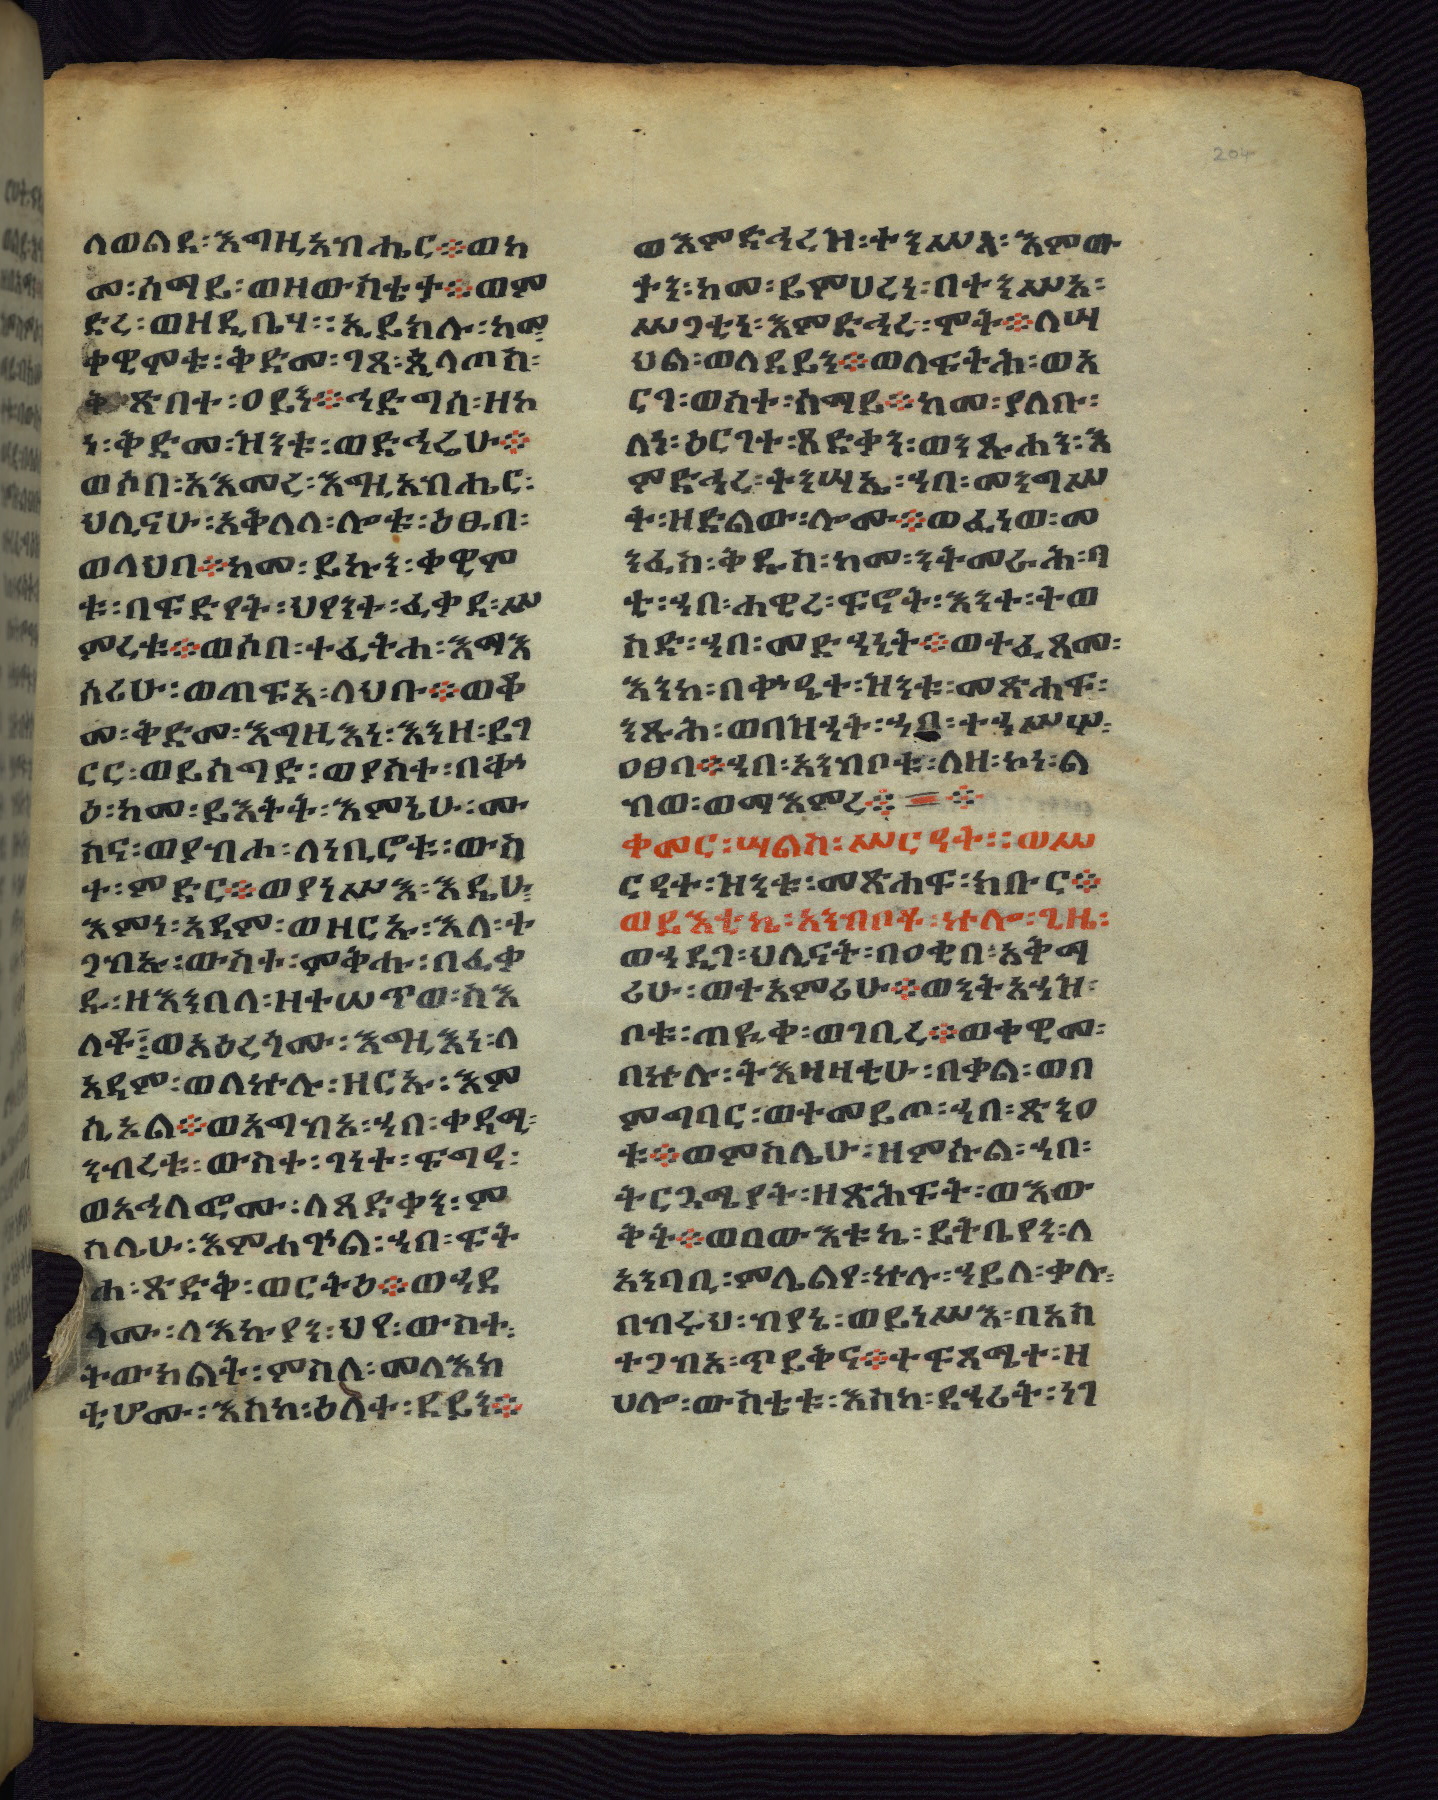 204
ለወልደ፡እግዚአብሔር፨ወከ
መ፡ሰማይ፡ወዘውስቴታ፨ወም
ድረ፡ወዘዲቤሃ፡፡ኢይክሉ፡ከመ፡
ቀዊሞቱ፡ቅድመ፡ገጸ፡ጲላጦስ፡
ጽበተ፡ዐይን፨ኅድግሰ፡ዘኮ
ነ፡ቅድመ፡ዝንቱ፡ወድኅሬሁ፨
ወሶበ፡አእመረ፡እግዚአብሔር፡
ህሊናሁ፡አቅለለ፡ሎቱ፡ዕፁበ፡
ወላህበ፨ከመ፡ይኩን፡ቀዊሞ
ቱ፡በፍድየት፡ህየንተ፡ፈቃደ፡ሥ
ምረቱ፨ወሶበ፡ተፈትሐ፡እማእ
ሰሪሁ፡ወጠፍአ፡ላህቡ፨ወቆ
መ፡ቅድመ፡እግዚእነ፡እንዘ፡ይገ
ርር፡ወይሰግድ፡ወያስተ፡በቍ
ዕ፡ከመ፡ይእትት፡እምኔሁ፡ሙ
ስና፡ወያብሐ፡ለነቢሮቱ፡ውስ
ተ፡ምድር፨ወያነሥእ፡እዴሁ፡
እምነ፡አዳም፡ወዘርኡ፡እለ፡ተ
ጋብኡ፡ውስተ፡ምቅሑ፡በፈቃ
ዱ፡ዘእንበለ፡ዘተሠጥወ፡ስእ
ለቶ፤ወአዕረጎሙ፡እግዚእነ፡ለ
አዳም፡ወለኵሉ፡ዘርኡ፡እም
ሲኦል፨ወአግብአ፡ኀበ፡ቀዳሚ፡
ንብረቱ፡ውስተ፡ገነተ፡ፍግዓ፡
ወአኅለፎሙ፡ለጻድቃን፡ም
ስሌሁ፡እምሐጕል፡ኀበ፡ፍት
ሐ፡ጽድቅ፡ወርትዕ፨ወኀደ
ጎሙ፡ለእኩያን፡ህየ፡ውስተ፡
ትውክልት፡ምስለ፡መላእክ
ቲሆሙ፡እስከ፡ዕለተ፡ደይን፨
ወእምድኅረዝ፡ተንሥአ፡እምው
ታን፡ከመ፡ይምሀረነ፡በተንሥአ፡
ሥጋቲነ፡እምድኅረ፡ሞት፨ለሣ
ህል፡ወለደይን፨ወለፍትሕ፡ወአ
ርገ፡ውስተ፡ሰማይ፨ከመ፡ያለቡ፡
ለነ፡ዕርገተ፡ጻድቃን፡ወንጹሐን፡እ
ምድኅረ፡ትንሣኤ፡ኀበ፡መንግሥ
ት፡ዘድልው፡ሎሙ፨ወፈነወ፡መ
ንፈሰ፡ቅዱሰ፡ከመ፡ንትመራሕ፡ባ
ቲ፡ኀበ፡ሐዊረ፡ፍኖት፡እንተ፡ትወ
ስድ፡ኀበ፡መድኀኒት፨ወተፈጸመ፡
እንከ፡በቍዔተ፡ዝንቱ፡መጽሐፍ፡
ንጹሕ፡ወበዝኅት፡ኀበ፡ተኀሥሠ፡
ዐፀባ፨ኀበ፡አንብቦቱ፡ለዘ፡ኮነ፡ል
ብወ፡ወማእምረ፨=፨
ቀመር፡ሣልስ፡ሥርዓት፡፡ወሥ
ርዓተ፡ዝንቱ፡መጽሐፍ፡ክቡር፨
ወይእቲኬ፡አንብቦቶ፡ኵሎ፡ጊዜ፡
ወኀዲገ፡ህሊናት፡በዐቂበ፡አቅማ
ሪሁ፡ወተአምሪሁ፨ወንትአኀዝ፡
ቦቱ፡ጠዪቀ፡ወገቢረ፨ወቀዊመ፡
በኵሉ፡ትእዛዛቲሁ፡በቃል፡ወበ
ምግባር፡ወተመይጦ፡ኀበ፡ጽንዐ
ቱ፨ወምስሌሁ፡ዘምስል፡ኀበ፡
ትርጓሜያት፡ዘጽሕፍት፡ወእው
ቅት፨ወበውእቱኬ፡ይትቤየነ፡ለ
አንባቢ፡ምሌልየ፡ኵሉ፡ኀይለ፡ቃሉ፡
በብሩህ፡ብያኔ፡ወይነሥእ፡በአስ
ተጋብአ፡ጥይቅና፨ተፍጻሜተ፡ዘ
ሀሎ፡ውስቴቱ፡እስከ፡ደኃሪት፡ነገ